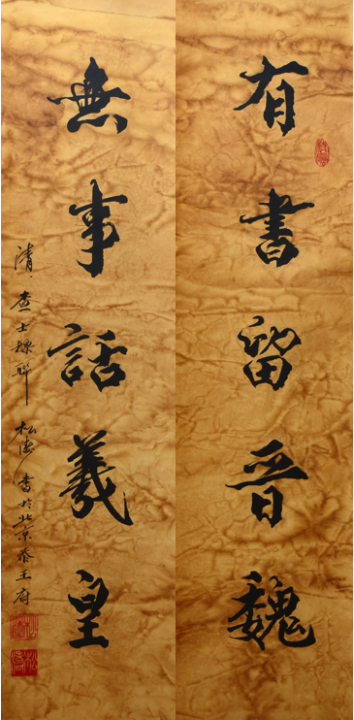 有書留晉魏
無事話羲皇
清、查士標聯 松濤書於北京恭王府